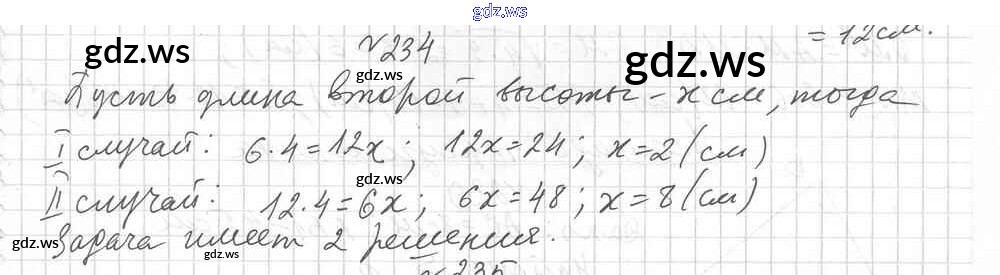 gdz.ws
= 12см.
№234
gdz.ws
gdz.ws
gdz.ws
Пусть длина второй высоты – x см, тогда
I случай: 6·4=12x; 12x=24; x=2(см)
gdz.ws
II случай: 12·4=6x; 6x=48; x=8(см)
Задача имеет 2 решения.
gdz.ws
gdz.ws
gdz.ws
№235